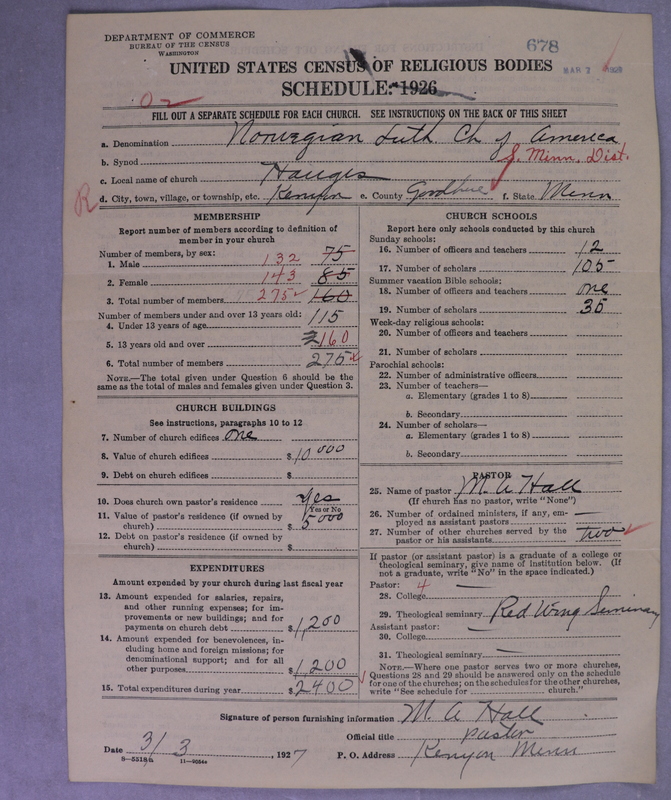 DEPARTMENT OF COMMERCE
BUREAU OF THE CENSUS
WASHINGTON
678
MAR 7
UNITED STATES CENSUS OF RELIGIOUS BODIES
SCHEDULE: 1926
FILL OUT A SEPARATE SCHEDULE FOR EACH CHURCH. SEE INSTRUCTIONS ON THE BACK OF THIS SHEET
a. Denomination Norwegian Luth. Ch of America
b. Synod S. Minn. Dist.
c. Local name of church Hauges
R d. City, town, village, or township, etc. Kenyon e. County Goodhue f. State Minn
MEMBERSHIP
Report number of members according to definition of
member in your church
Number of members, by sex:
1. Male 132 75
2. Female 143 85
3. Total number of members 275 160
Number of members under and over 13 years old:
4. Under 13 years of age 115
5. 13 years old and over 160
6. Total number of members 275
NOTE.—The total given under Question 6 should be the
same as the total of males and females given under Question 3.
CHURCH BUILDINGS
See instructions, paragraphs 10 to 12
7. Number of church edifices one
8. Value of church edifices $10000
9. Debt on church edifices $
10. Does church own pastor's residence yes
Yes or No
11. Value of pastor's residence (if owned by
church) $5000
12. Debt on pastor's residence (if owned by
church) $
EXPENDITURES
Amount expended by your church during last fiscal year
13. Amount expended for salaries, repairs,
and other running expenses; for im-
provements or new buildings; and for
payments on church debt $1,200
14. Amount expended for benevolences, in-
cluding home and foreign missions; for
denominational support; and for all
other purposes $1,200
15. Total expenditures during year $2400
CHURCH SCHOOLS
Report here only schools conducted by this church
Sunday schools:
16. Number of officers and teachers 12
17. Number of scholars 105
Summer vacation Bible schools:
18. Number of officers and teachers one
19. Number of scholars 35
Week-day religious schools:
20. Number of officers and teachers
21. Number of scholars
Parochial schools:
22. Number of administrative officers
23. Number of teachers—
a. Elementary (grades 1 to 8)
b. Secondary
24. Number of scholars—
a. Elementary (grades 1 to 8)
b. Secondary
PASTOR
25. Name of pastor M. A Hall
(If church has no pastor, write "None")
26. Number of ordained ministers, if any, em-
ployed as assistant pastors —
27. Number of other churches served by the
pastor or his assistants two
If pastor (or assistant pastor) is a graduate of a college or
theological seminary, give name of institution below. (If
not a graduate, write "No" in the space indicated.)
Pastor: 4
28. College —
29. Theological seminary Red Wing Seminary
Assistant pastor:
30. College —
31. Theological seminary —
NOTE.—Where one pastor serves two or more churches,
Questions 28 and 29 should be answered only on the schedule
for one of the churches; on the schedules for the other churches,
write "See schedule for church."
Signature of person furnishing information M. A Hall
Official title pastor
Date 3/3 1927 P. O. Address Kenyon Minn